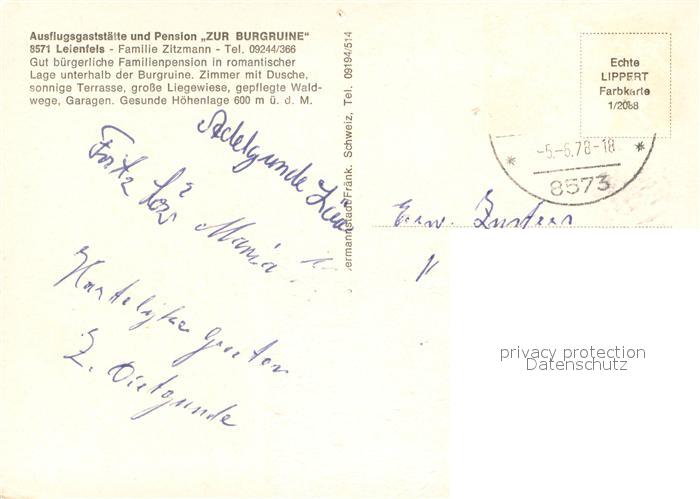 Ausflugsgaststätte und Pension „ZUR BURGRUINE"
8571 Leienfels - Familie Zitzmann - Tel. 09244/366
Gut bürgerliche Familienpension in romantischer
Lage unterhalb der Burgruine. Zimmer mit Dusche,
sonnige Terrasse, große Liegewiese, gepflegte Wald-
wege, Garagen. Gesunde Höhenlage 600 m ü. d. M.
ermannstadt/Fränk. Schweiz, Tel. 09194/514
Echte
LIPPERT
Farbkarte
1/2088
-5.-6.78-18
8573
Adelgunde
Fritz
Maria
Eerw. Zusters
Hartelijke Groeten
Z. Dietgunde
privacy protection
Datenschutz